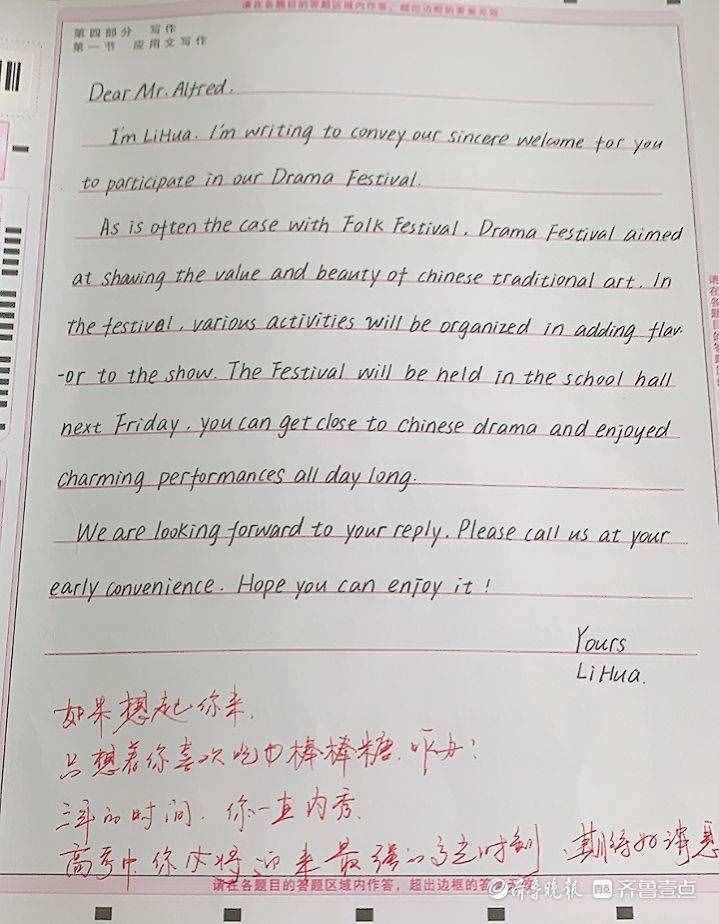 请在各题目的答题区域内作答，超出边框的答案无效
第四部分 写作
第一节 应用文写作
Dear Mr. Alfred.
I'm LiHua. I'm writing to convey our sincere welcome for you
to participate in our Drama Festival.
As is often the case with Folk Festival, Drama Festival aimed
at shaving the value and beauty of chinese traditional art. In
the festival, various activities will be organized in adding flav-
-or to the show. The Festival will be held in the school hall
next Friday, you can get close to chinese drama and enjoyed
charming performances all day long.
We are looking forward to your reply. Please call us at your
early convenience. Hope you can enjoy it!
Yours
LiHua.
如果想起你来，
只想着你喜欢吃的棒棒糖，咋办？
三年的时间，你一直内秀，
高考中你必将迎来最强的高光时刻，期待好消息
请在各题目的答题区域内作答，超出边框的答案无效
齐鲁晚报 齐鲁壹点